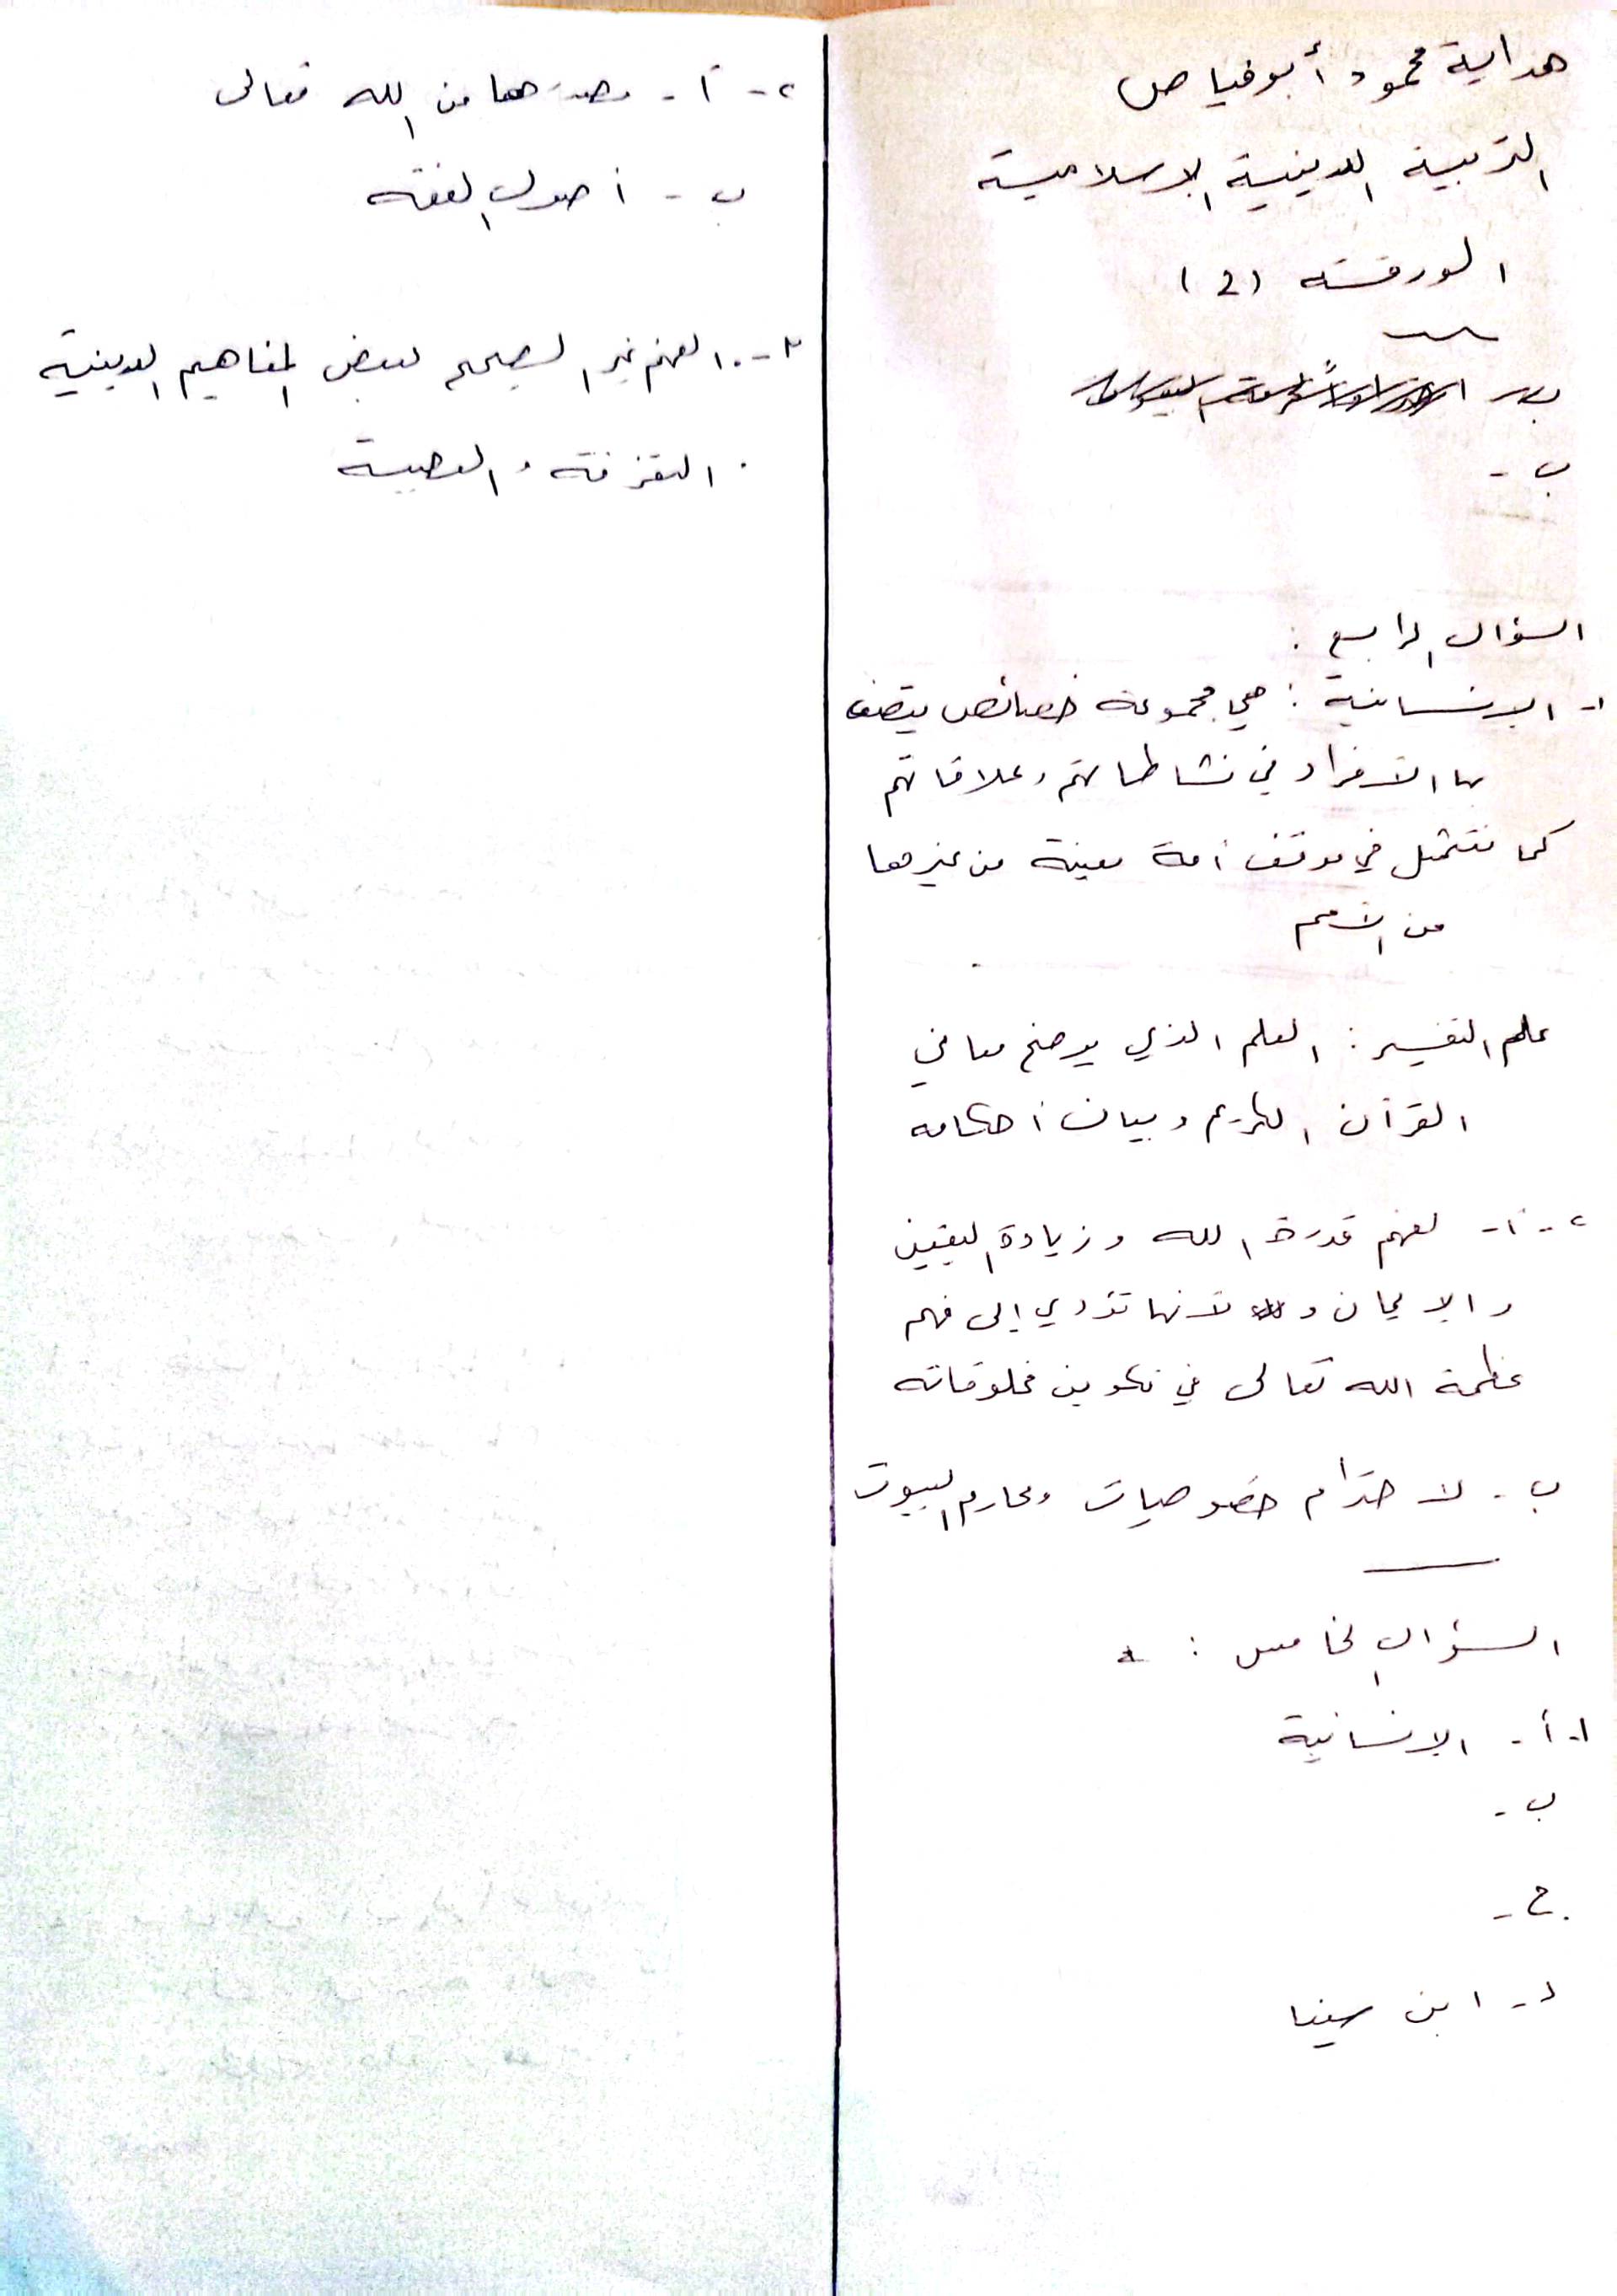 هداية محمود أبو فياض
التربية الدينية الإسلامية
الورقة (2)
ب -
السؤال الرابع :
١- الإنسانية : هي مجموعة خصائص يتصف
بها الأفراد في نشاطاتهم وعلاقاتهم
كما تتمثل في موقف أمة معينة من غيرها
من الأمم
علم التفسير : العلم الذي يوضح معاني
القرآن الكريم وبيان أحكامه
٢- أ- لفهم قدرة الله وزيادة اليقين
والإيمان و لأنها تؤدي إلى فهم
عظمة الله تعالى في تكوين مخلوقاته
ب- لاحترام خصوصيات ومحارم البيوت
السؤال الخامس :
١- أ- الإنسانية
ب -
ج -
د- ابن سينا
٢- أ- مصدرهما من الله تعالى
ب - أصول الفقه
٣- . الفهم غير الصحيح لبعض المفاهيم الدينية
. التفرقة والعصبية